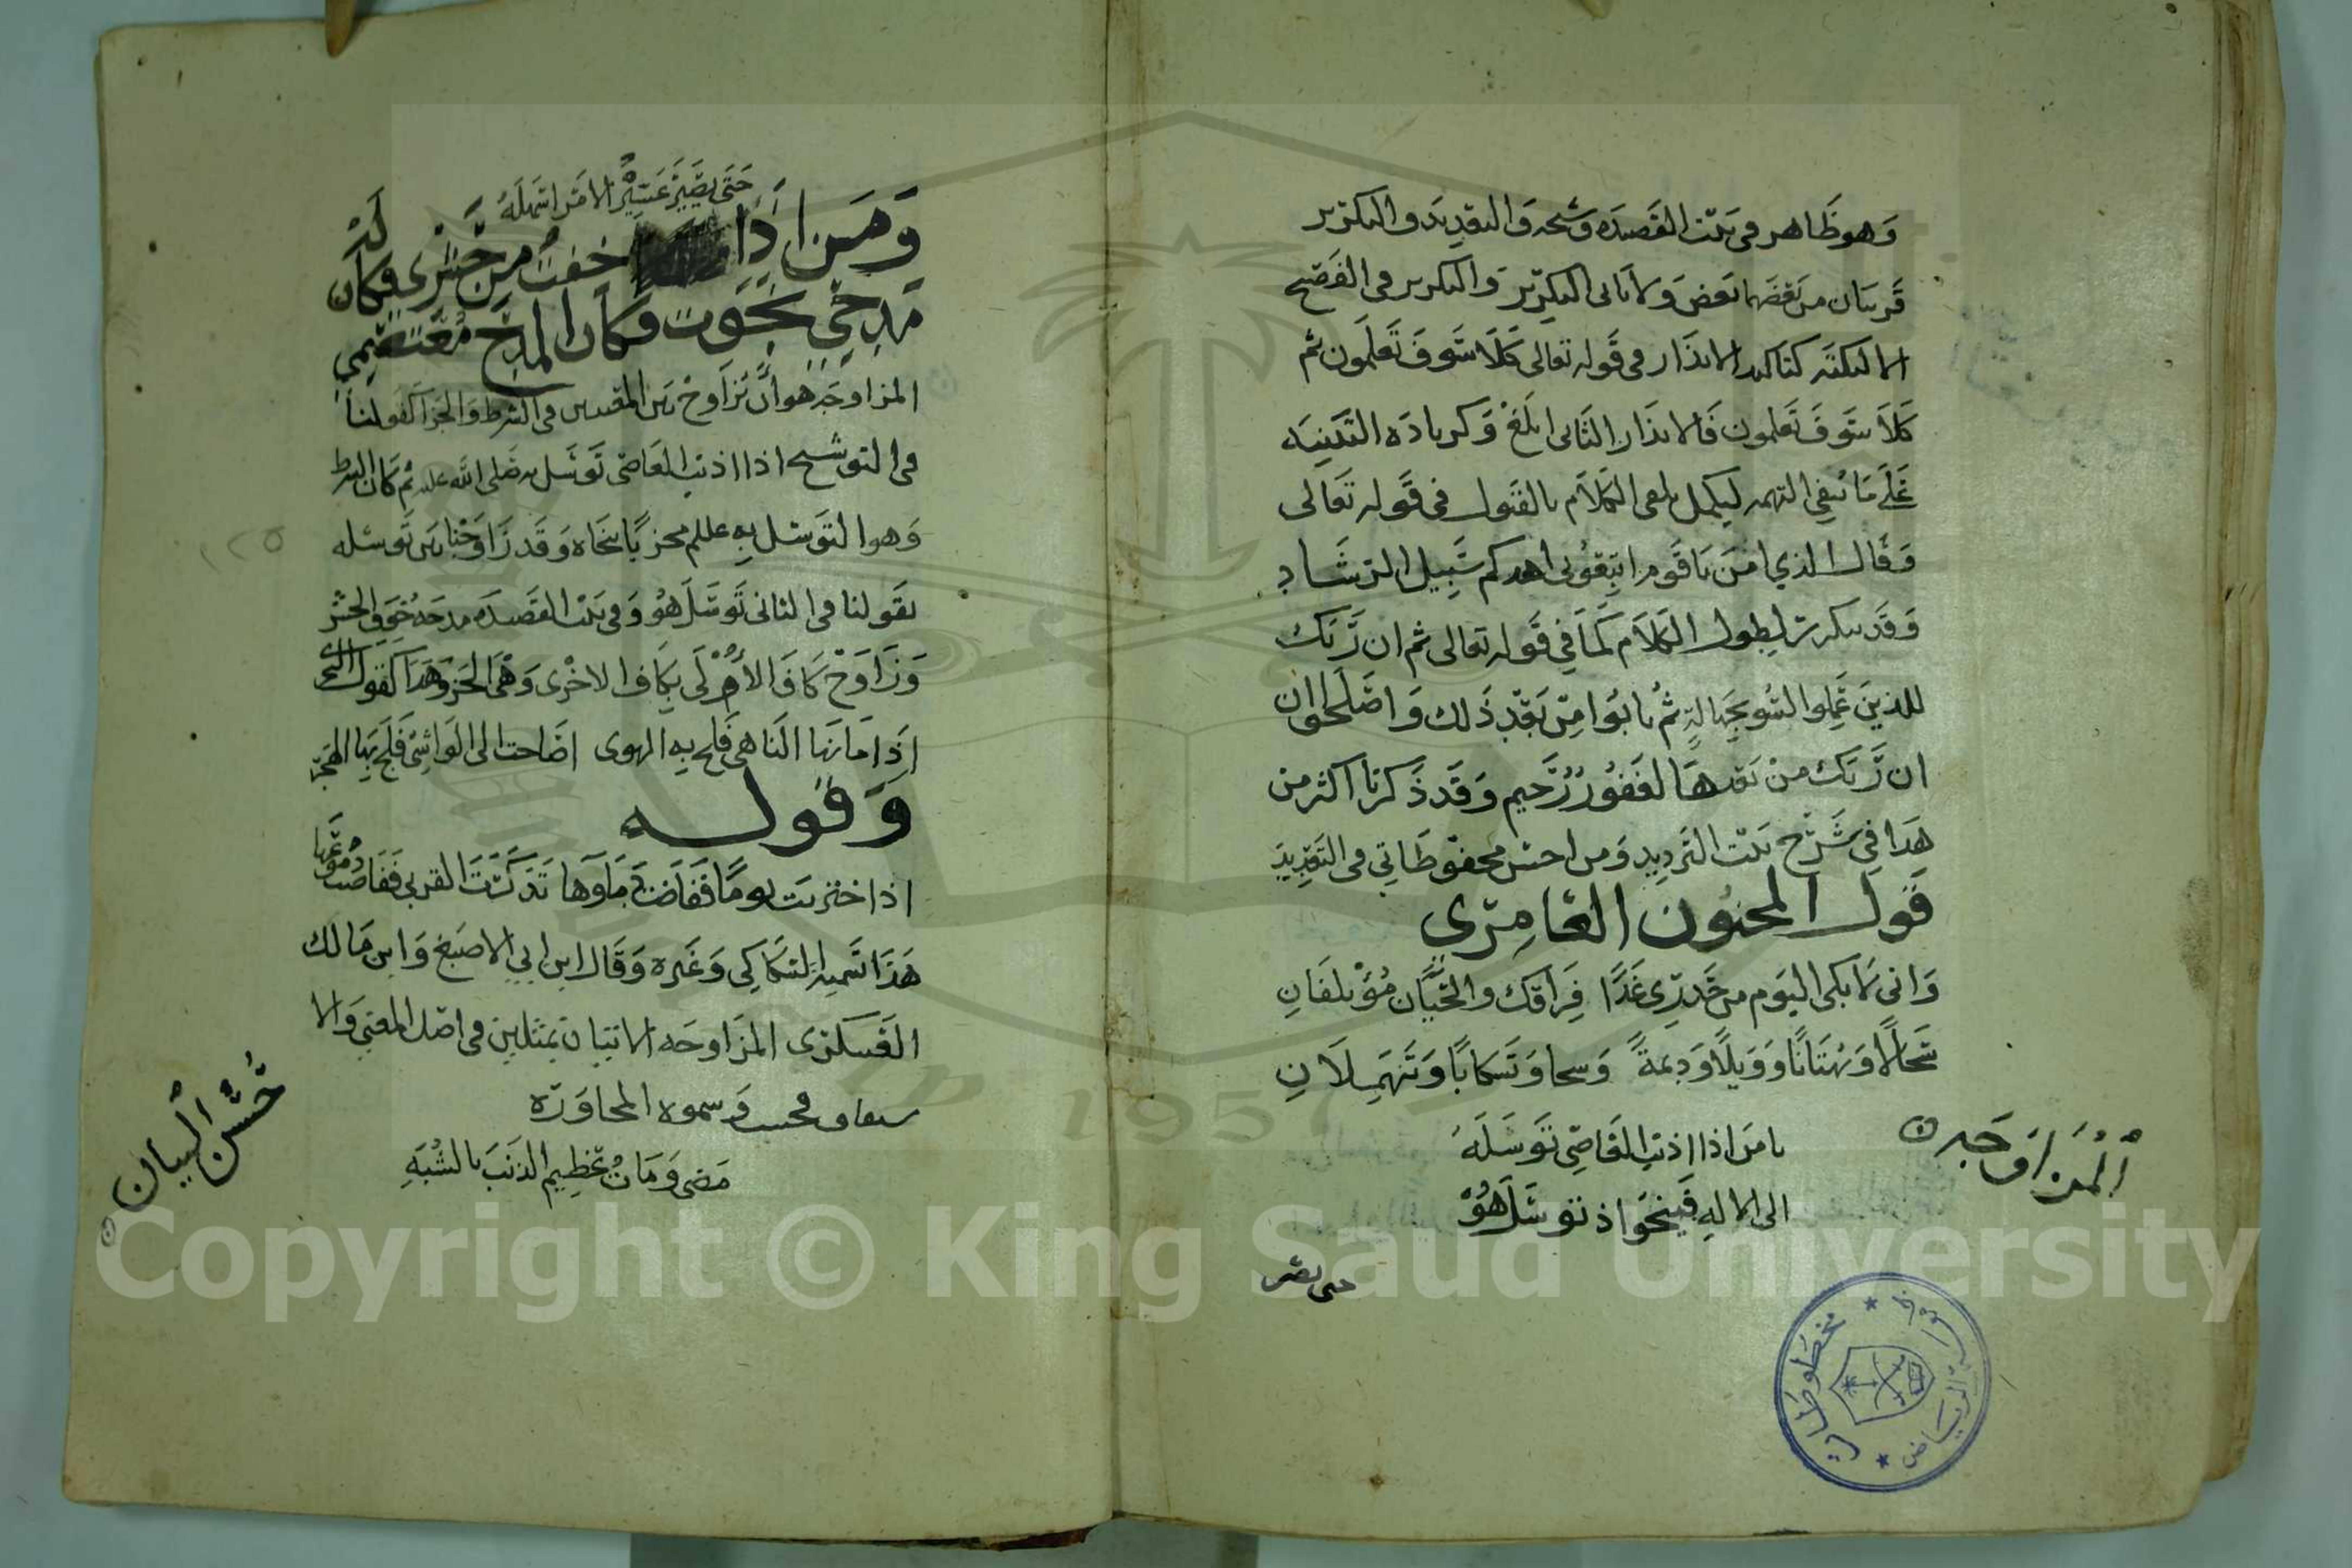 وَهوظَاهر فى بَيت القَصيدَه وشحه وَالتعديد والتكرير
قَريبان من بَعضهَا بَعض وَلا يَاتى التكرير وَالتكرير فى الفَصيح
الا لنكتَه كتاكيد الانذَار فى قَوله تعالى كَلَا سَوفَ تَعلَمون ثم
كَلَا سَوفَ تَعلمون فَالانذَار الثَانى ابلَغ وَكزيادَه التَنبيه
عَلَى مَا يَنفي التهمه ليكمل تلقى الكلَام بالقبول فى قَوله تَعَالى
وَقَال الذي امَنَ يَا قَوم اتبِعُونى اهدكم سَبِيل الرشَاد
وَقَد يتكرر لِطول الكلَام كَمَا في قَوله تعالى ثم ان رَبَك
للذينَ عَمِلوا السُو بجَهَالةٍ ثمُ تابُوا مِن بَعدِ ذَلك وَاصلَحوا ان
ان رَبَك من بَعدهَا لغَفُورٌ رَحيم وَقَد ذَكرنا اكثر من
هذَا في شَرح بَيت التَرديد وَمن احسن محفوظَاتي فى التَعديد
قَول المجنون العَامِري
وَانى لَابكى اليَوم من حَذري غَدًا فِرَاقك والحَيَّان مُؤتلفَانِ
سجَالًا وَتهتَانًا وَوَبلًا وَدِيمةً وَسحا وَتَسكابًا وَتَنهَمِلَانِ
المُزَاوَجَه
يا مَن اذا اذنب العَاصِى تَوَسَلَهُ
الى الالهِ فَينجُو اذ توسَلَ هُو
حتى يصير
حَتَى يَصَيرَ عَسِيرُ الامَر اسَهلَهُ
وَمَن اذَا خِفتُ من حَشرى فكَان لَهُ
مَدحى نجَوت فكَان المدح مُعتصَمِى
المزاوجَه هوانَّ تزَاوج بَين المعنيين فى الشرط وَالجزا كقولنا
فى التوشيح اذا اذنب العَاصى تَوَسَل به صَلى الله عليه ثم كَان الشرط
وَهوا لتَوسل بهِ نجَاه وَقَد زَاوَجْنا بَين تَوسله
بقَولنا فى الثانى تَوسَلَ هُو وَفى بَيت القَصيدَه مدحَه خَوف الحشر
وَزَاوَج كَافَ الأُولَى بكَاف الاخرى وَهى الجزا وَهَذَا كقول البحترى
اذا مَا نهَا النَاهى فَلج بهِ الهوى اصَاخت الى الوَاشِى فَلجَ بهَا الهَجر
وَقوله
اذا احتربَت يومًا ففَاضَت دمَاوهَا تَذكرَت القربى ففَاضت دُمُوعُهَا
هَذَا تسمية السَكاكى وَغَيره وَقَال ابن ابي الاصبَغ وَابن مَالك
العَسكرى المزَاوجَه الاتيان بمثلين فى اصل المعنى وَالا
فحسب وَسموه المحاوَره
حُسْنُ الْبيان
مَضى وَمَان تَحْظِيم الذَنب بالشُبَهِ
مخطوطات